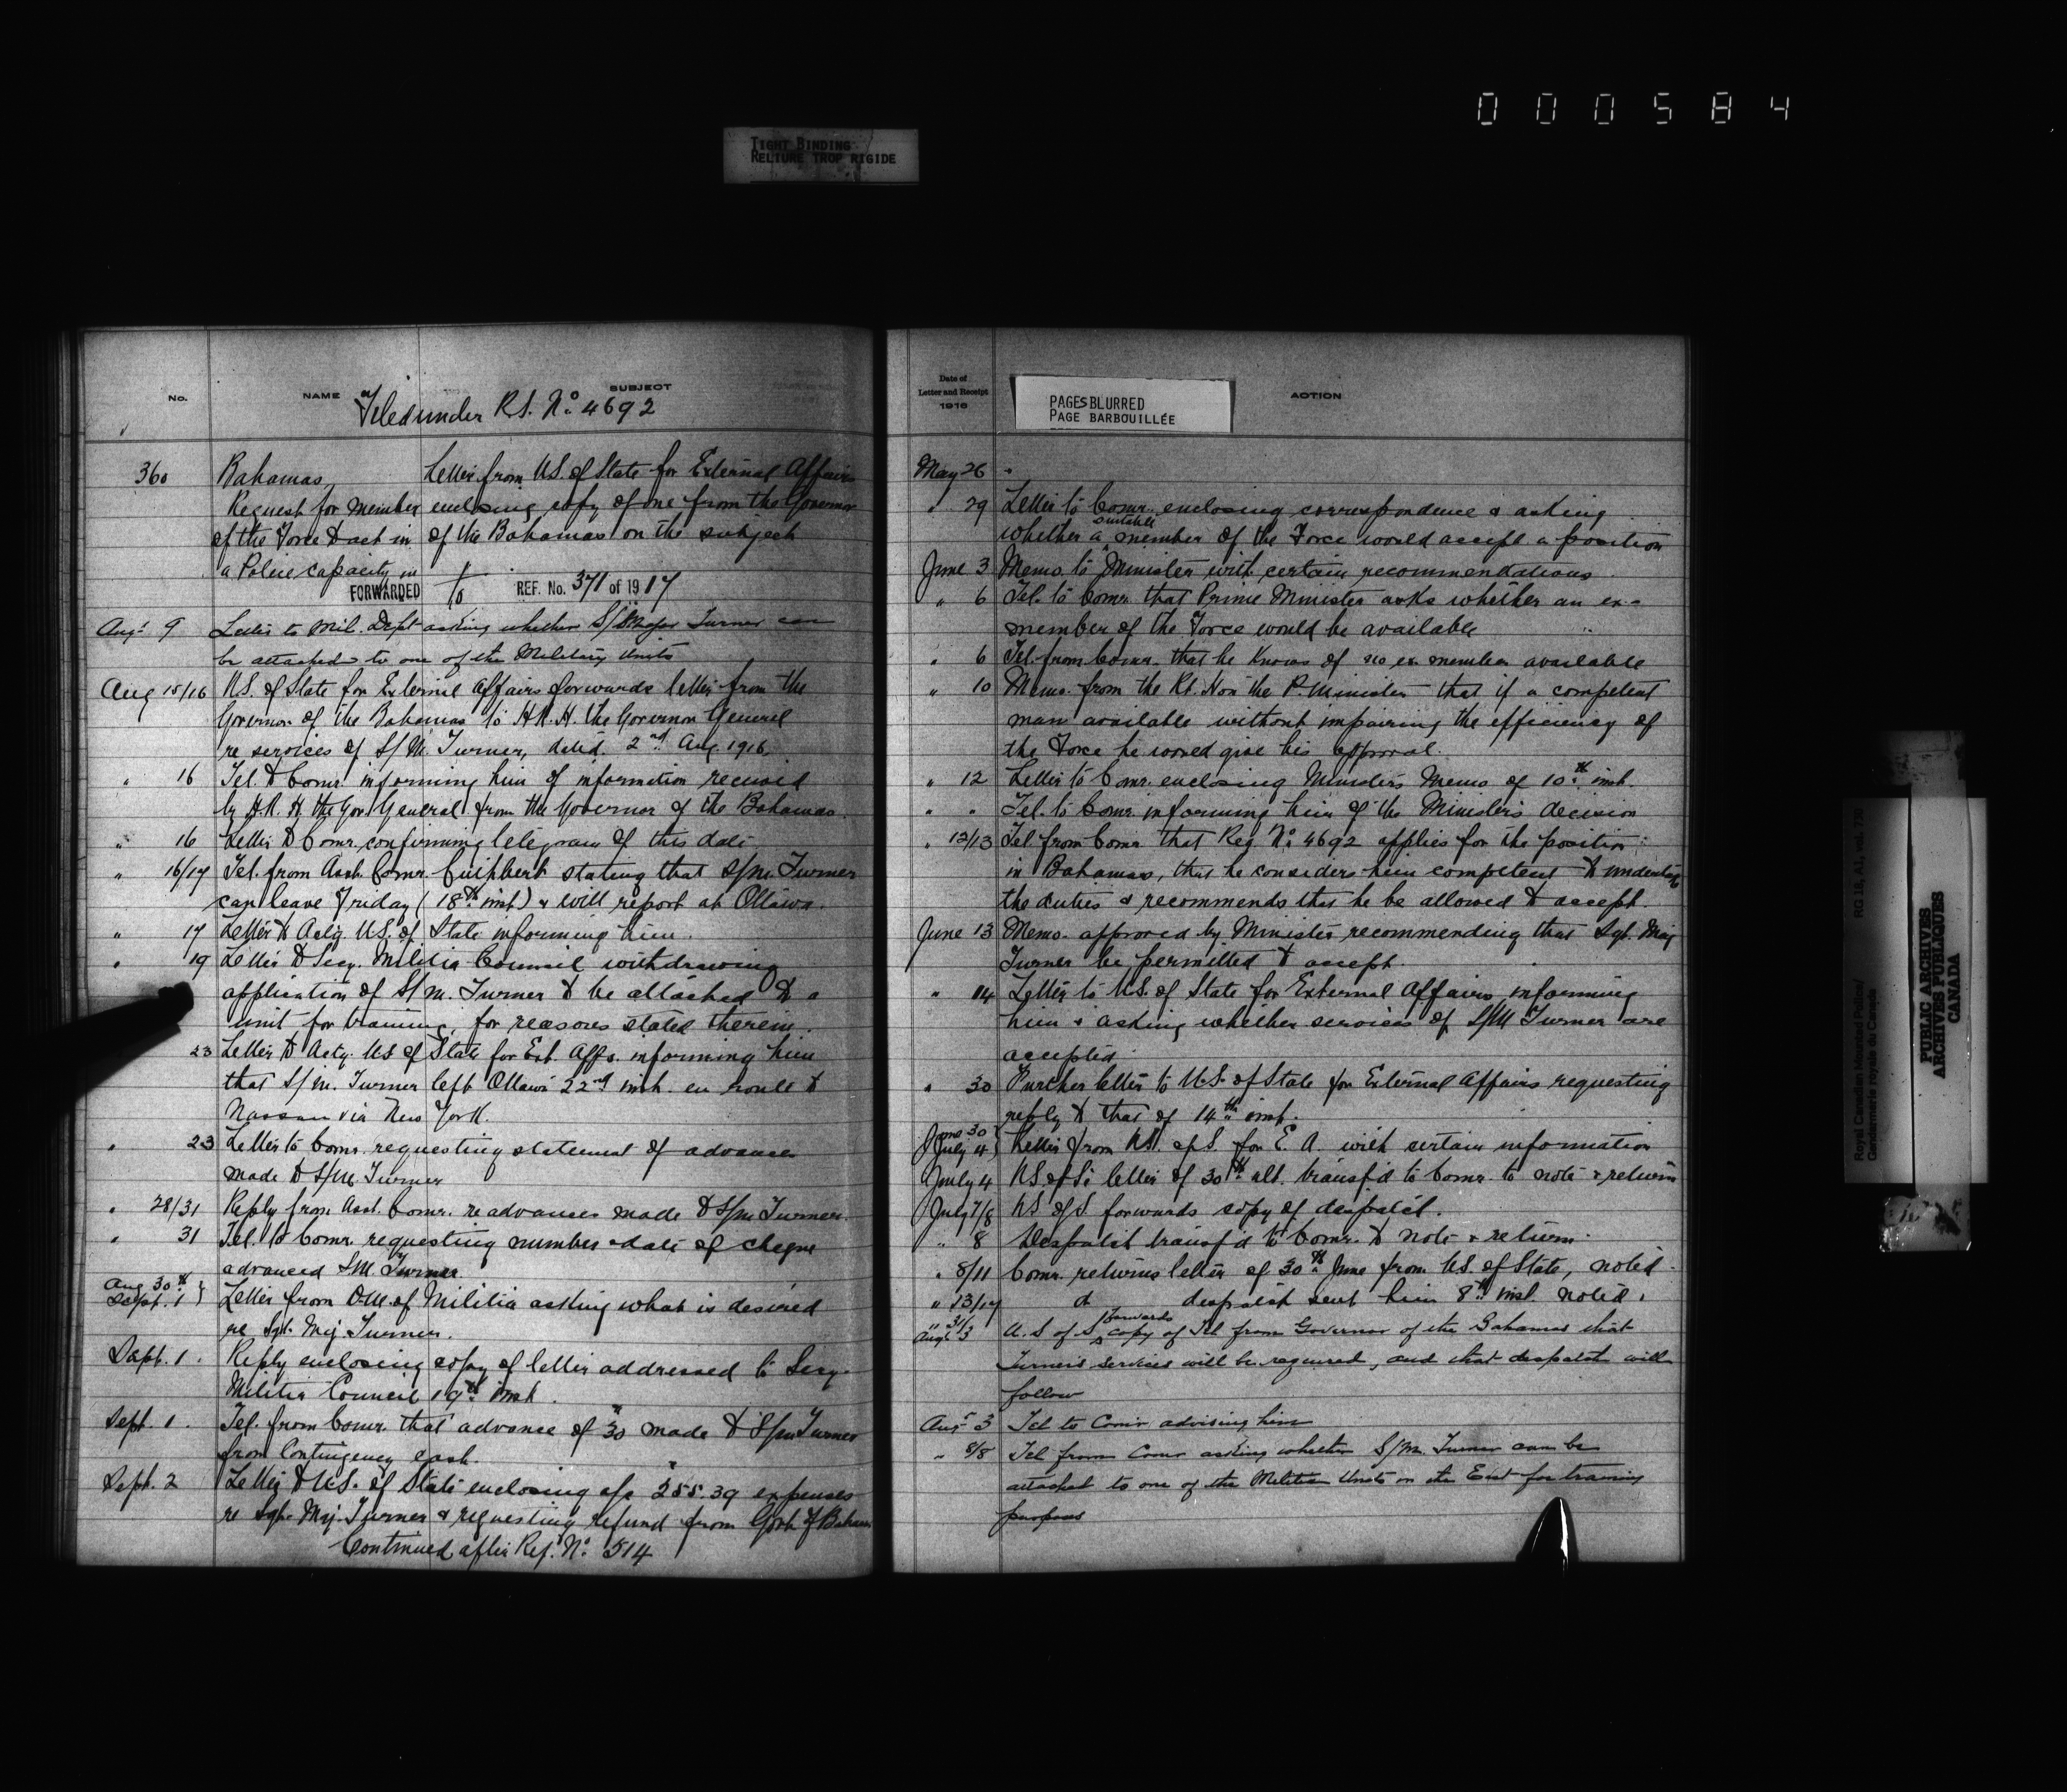 000584
TIGHT BINDING
RELIURE TROP RIGIDE
No.
NAME
SUBJECT
Filed under R.S. No. 4692
360
Bahamas, Letter from U.S. of State for External Affairs
Request for member enclosing copy of one from the Governor
of the Force to act in of the Bahamas on the subject
a Police capacity in
FORWARDED to REF. No. 371 of 1917
Aug. 9 Letter to Mil. Dept asking whether S/Major Turner can
be attached to one of the Military Units
Aug 15/16 U.S. of State for External Affairs forwards letter from the
Governor of the Bahamas to H.R.H. the Governor General
re services of S/M. Turner, dated 2nd Aug. 1916.
" 16 Tel. to Comr. informing him of information received
by H.R.H. the Gov. General from the Governor of the Bahamas.
" 16 Letter to Comr. confirming telegram of this date
" 16/17 Tel. from Asst. Comr. Cuthbert stating that S/M. Turner
can leave Friday (18th inst) & will report at Ottawa.
" 17 Letter to Actg. U.S. of State informing him.
" 19 Letter to Secy. Militia Council withdrawing
application of S/M. Turner to be attached to a
unit for training, for reasons stated therein.
23 Letter to Actg. U.S. of State for Ext. Affs. informing him
that S/M. Turner left Ottawa 22nd inst. en route to
Nassau via New York.
" 23 Letter to Comr. requesting statement of advances
made to S/M. Turner
" 28/31 Reply from Asst. Comr. re advances made to S/M Turner.
" 31 Tel. to Comr. requesting number & date of cheque
advanced S.M. Turner
Aug 30th
Sept. 1 } Letter from D.M. of Militia asking what is desired
re Sgt. Maj. Turner.
Sept. 1. Reply enclosing copy of letter addressed to Secy.
Militia Council 19th inst.
Sept. 1. Tel. from Comr. that advance of $30 made to S/M Turner
from Contingency cash.
Sept. 2 Letter to U.S. of State enclosing a/c $255.39 expenses
re Sgt. Maj. Turner & requesting refund from Govt. of Bahamas
Continued after Ref. No. 514
Date of
Letter and Receipt
1916
PAGES BLURRED
PAGE BARBOUILLÉE
ACTION
May 26 "
" 29 Letter to Comr. enclosing correspondence & asking
whether a suitable member of the Force would accept a position
June 3 Memo. to Minister with certain recommendations.
" 6 Tel. to Comr. that Prime Minister asks whether an ex-
member of the Force would be available
" 6 Tel. from Comr. that he knows of no ex. member available
" 10 Memo. from the Rt. Hon the P. Minister that if a competent
man available without impairing the efficiency of
the Force he would give his approval.
" 12 Letter to Comr. enclosing Ministers Memo of 10th inst.
" " Tel. to Comr. informing him of the Minister's decision
" 12/13 Tel from Comr that Reg. No. 4692 applies for the position
in Bahamas, that he considers him competent to undertake
the duties & recommends that he be allowed to accept.
June 13 Memo. approved by Minister recommending that Sgt. Maj
Turner be permitted to accept.
" 14 Letter to U.S. of State for External Affairs informing
him & asking whether services of S/M Turner are
accepted.
" 30 Further letter to U.S. of State for External Affairs requesting
reply to that of 14th inst.
June 30
July 4 } Letter from U.S. of S. for E.A. with certain information
July 4 U.S. of S's letter of 30th ult. transf'd to Comr. to note & return
July 7/8 U.S. of S forwards copy of despatch.
" 8 Despatch transf'd to Comr. to note & return.
" 8/11 Comr. returns letter of 30th June from U.S. of State, noted.
" 13/17 do despatch sent him 8th inst. noted.
" 31/
Augt 3 U.S of S forwards copy of Tel from Governor of the Bahamas that
Turner's services will be required, and that despatch will
follow
Augt 3 Tel to Comr advising him
" 8/8 Tel from Comr asking whether S/M. Turner can be
attached to one of the Militia Units in the East for training
purposes
Royal Canadian Mounted Police/ RG 18, A1, vol. 778
Gendarmerie royale du Canada
PUBLIC ARCHIVES
ARCHIVES PUBLIQUES
CANADA